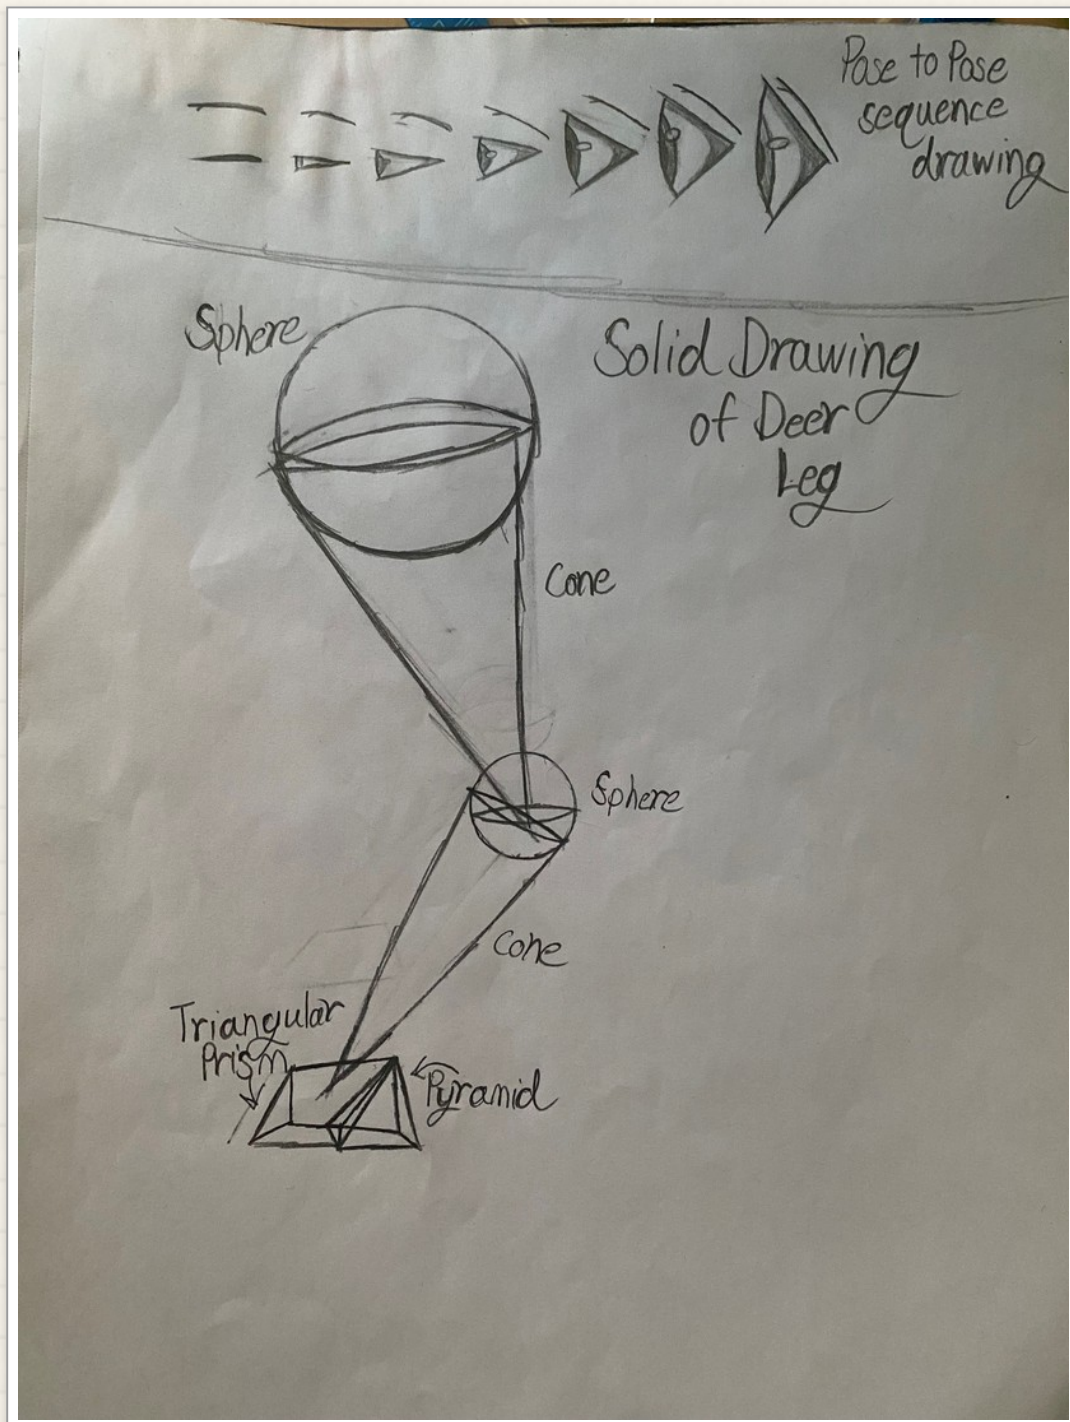 Pose to Pose
sequence
drawing
Sphere
Solid Drawing
of Deer
Leg
Cone
Sphere
Cone
Triangular
Prism
Pyramid